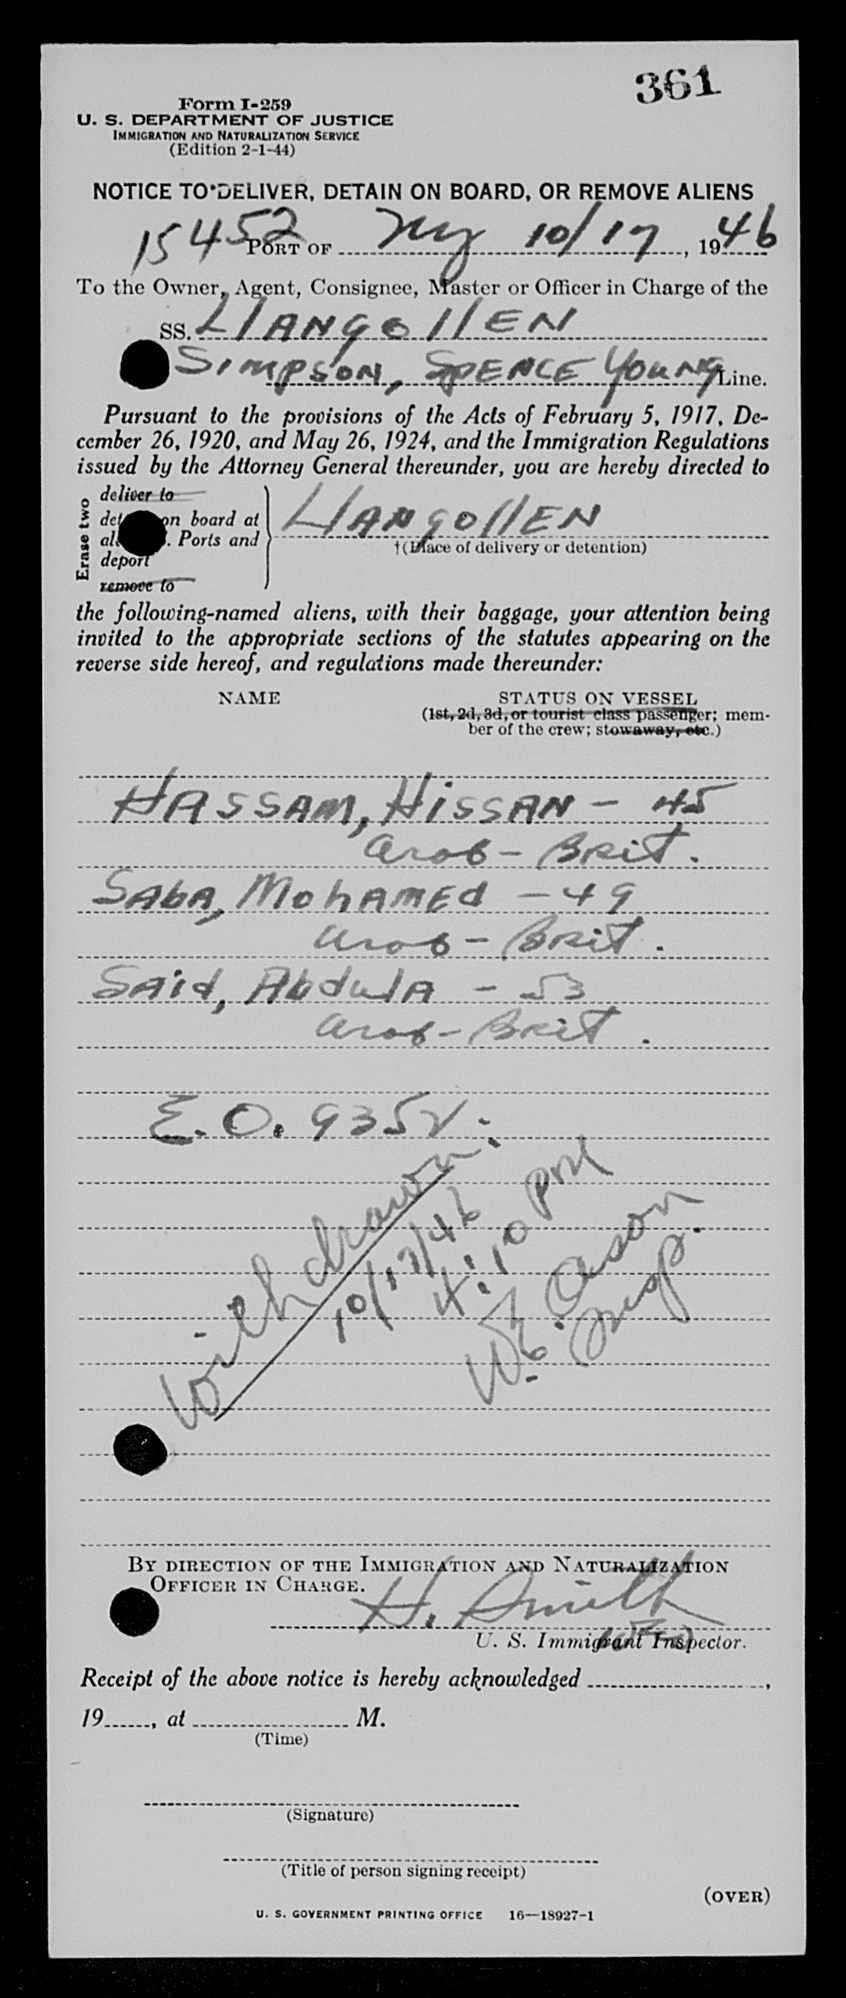 361
Form I-259
U. S. DEPARTMENT OF JUSTICE
IMMIGRATION AND NATURALIZATION SERVICE
(Edition 2-1-44)
NOTICE TO DELIVER, DETAIN ON BOARD, OR REMOVE ALIENS
15452 PORT OF NY 10/17, 1946
To the Owner, Agent, Consignee, Master or Officer in Charge of the
SS. LlANgollEN
SIMPSON, SPENCE YOUNG Line.
Pursuant to the provisions of the Acts of February 5, 1917, De-
cember 26, 1920, and May 26, 1924, and the Immigration Regulations
issued by the Attorney General thereunder, you are hereby directed to
Erase two
deliver to
on board at LlANgollEN
Ports and †(Place of delivery or detention)
deport
remove to
the following-named aliens, with their baggage, your attention being
invited to the appropriate sections of the statutes appearing on the
reverse side hereof, and regulations made thereunder:
NAME STATUS ON VESSEL
(1st, 2d, 3d, or tourist class passenger; mem-
ber of the crew; stowaway, etc.)
HASSAM, HISSAN - 45
Arab - Brit.
SAbA, MohAMEd - 49
Arab - Brit.
SAid, AbdulA - 53
Arab - Brit.
E.O. 9352.
Withdrawn
10/17/46
4:10 PM
W.E.
Insp.
BY DIRECTION OF THE IMMIGRATION AND NATURALIZATION
OFFICER IN CHARGE.
H. Smith
U. S. Immigrant Inspector.
Receipt of the above notice is hereby acknowledged ,
19 , at M.
(Time)
(Signature)
(Title of person signing receipt)
(OVER)
U. S. GOVERNMENT PRINTING OFFICE 16—18927-1